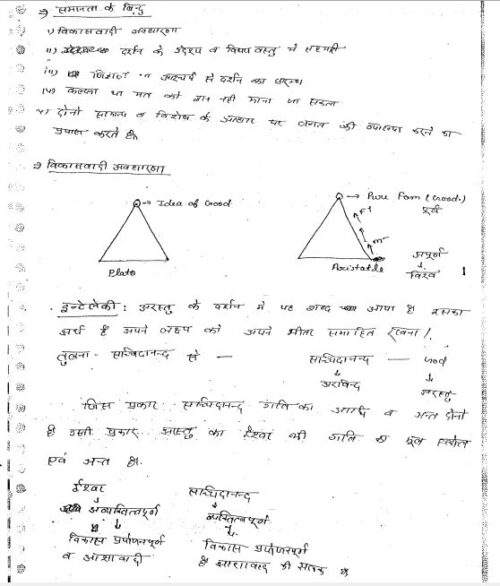 ⇒ समानता के बिन्दु
i) विकासवादी अवधारणा
ii) दर्शन के उद्देश्य व विषयवस्तु में
iii) जिज्ञासा आश्चर्य से दर्शन का आरम्भ
iv) कल्पना या मत को ज्ञान नहीं माना जा सकता
v) दोनों सामान्य व विशेष के आधार पर जगत की व्याख्या करने का
प्रयास करते हैं।
⇒ विकासवादी अवधारणा
→ Idea of Good
Plato
→ Pure Form (Good)
पूर्ण
F↑
M
Aristotle
अपूर्ण
↓
विश्व
इन्टेलेकी: अरस्तु के दर्शन में यह शब्द आया है इसका
अर्थ है अपने लक्ष्य को अपने भीतर समाहित रखना।
तुलना - सच्चिदानन्द से —
सच्चिदानन्द — God
↓ ↓
अरविन्द अरस्तु
जिस प्रकार सच्चिदानन्द गति का आदि व अन्त दोनों
है उसी प्रकार अरस्तु का ईश्वर भी गति का मूल स्त्रोत
एवं अन्त है।
ईश्वर
↓
अव्यक्तित्वपूर्ण
↓
विकास प्रयोजनपूर्ण
व आशावादी
सच्चिदानन्द
↓
व्यक्तित्वपूर्ण
↓
विकास प्रयोजनपूर्ण
है आशावाद की